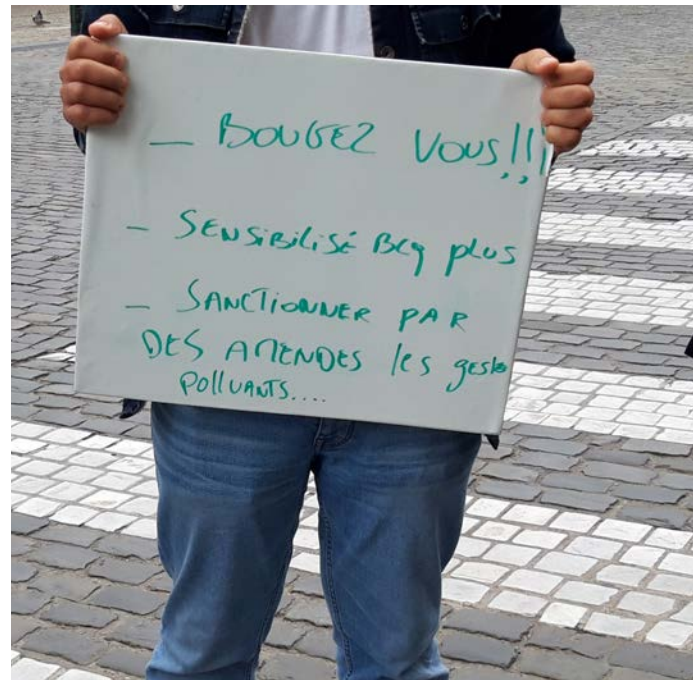 — BOUGEZ VOUS!!!
- SENSIBILISÉ BCQ plus
- SANCTIONNER PAR
DES AMENDES les gestes
POllUANTS....